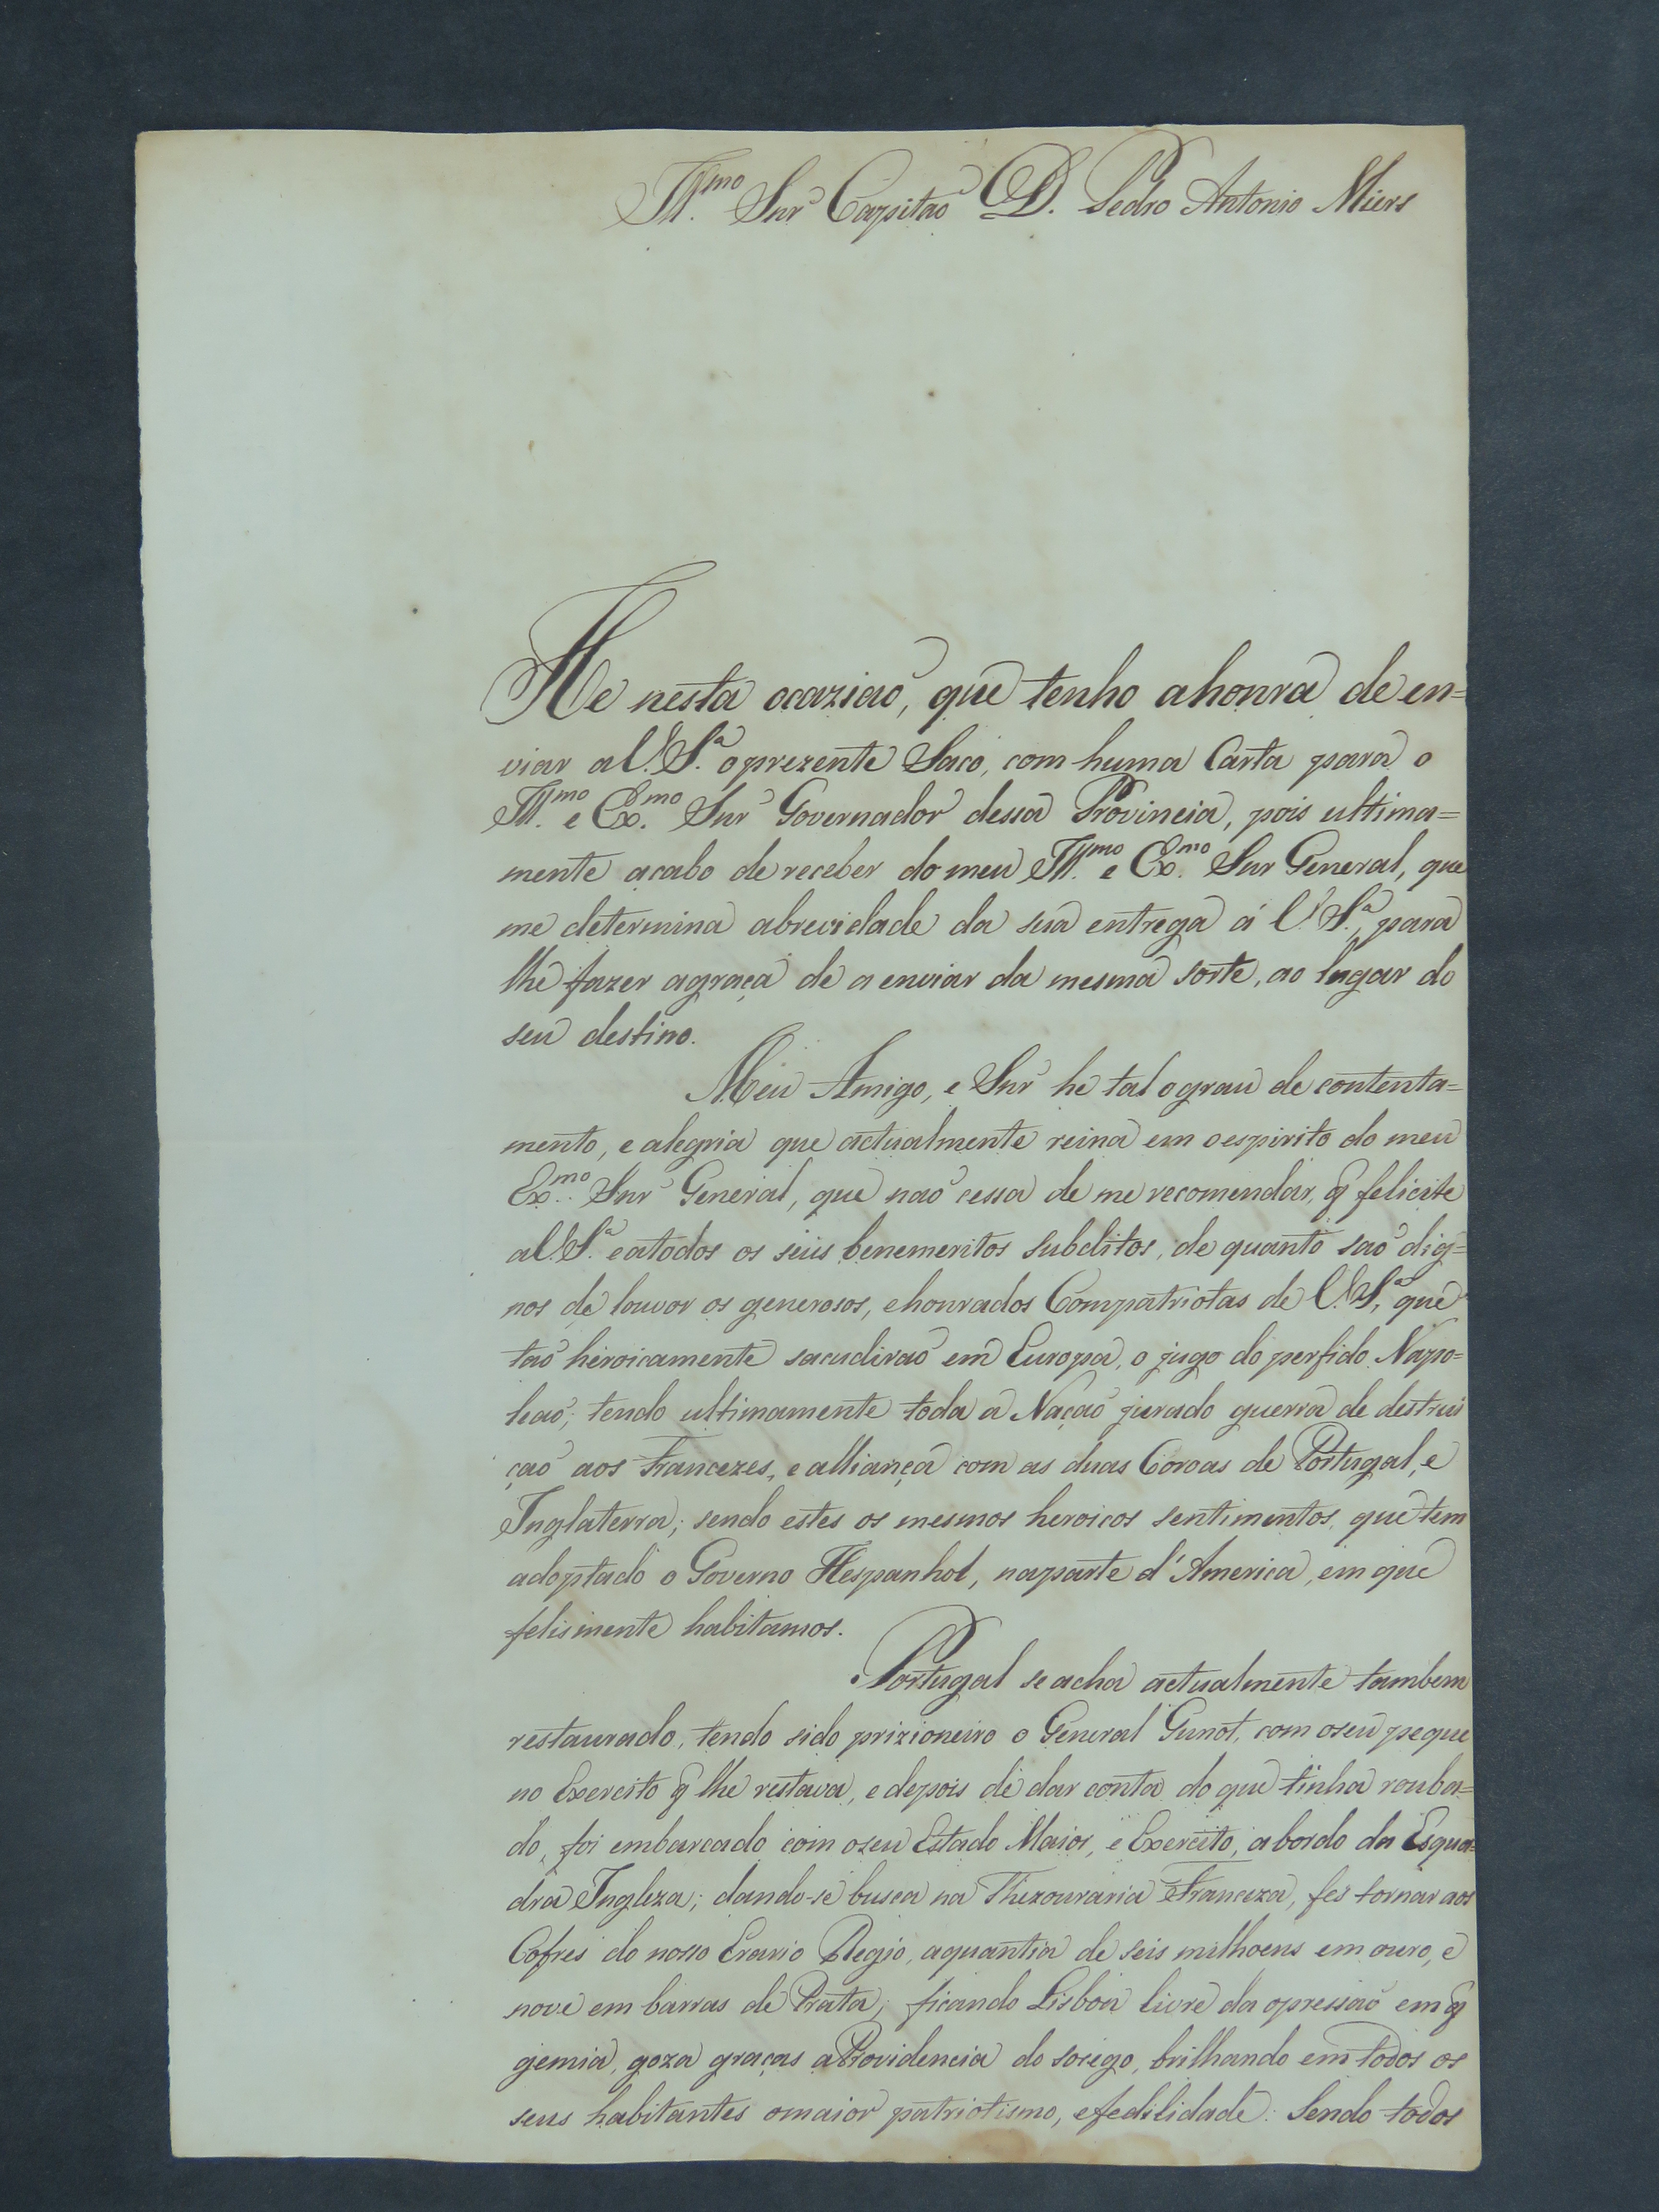 Ill.mo Snr Capitaõ D. Pedro Antonio Miers
He nesta ocaziaõ, que tenho ahonra de en=
viar aV.S.a oprezente Saco, com huma Carta para o
Ill.mo e Ex.mo Snr Governador dessa Provincia, pois ultima=
mente acabo de receber do meu Ill.mo e Ex.mo Snr General, que
me determina abrevidade da sua entrega á V.S.a, para
lhe fazer agraça de a enviar da mesma sorte, ao lugar do
seu destino.
Meu Amigo, e Snr he tal ograu de contenta=
mento, e alegria que actualmente reina em oespirito do meu
Ex.mo Snr General, que naõ cessa de me recomendar, q̃ felicite
aV.S.a eatodos os seus benemeritos subditos, de quanto saõ dig=
nos de louvor os generosos, ehonrados Compatriotas de V.S.a, que
taõ heroicamente sacudiraõ em Europa, o jugo do perfido Napo=
leaõ; tendo ultimamente toda a Naçaõ jurado guerra de destrui
çaõ aos Francezes, e alliança com as duas Coroas de Portugal, e
Inglaterra; sendo estes os mesmos heroicos sentimentos que tem
adoptado o Governo Hespanhol, naparte d'America, em que
felismente habitamos.
Portugal se acha actualmente tambem
restaurado, tendo sido prizioneiro o General Gunot, com oseu peque
no Exercito q̃ lhe restava, e depois de dar conta do que tinha rouba=
do, foi embarcado com oseu Estado Maior, e Exercito, abordo da Esqua=
dra Ingleza; dando-se busca na Thezouraria Franceza, fes tornar aos
Cofres do nosso Erario Regio, aquantia de seis milhoens em ouro, e
nove em barras de Prata; ficando Lisboa livre da opressaõ em q̃
gemia, goza graças aProvidencia do socego, brilhando em todos os
seus habitantes omaior patriotismo, efedilidade: Sendo todos